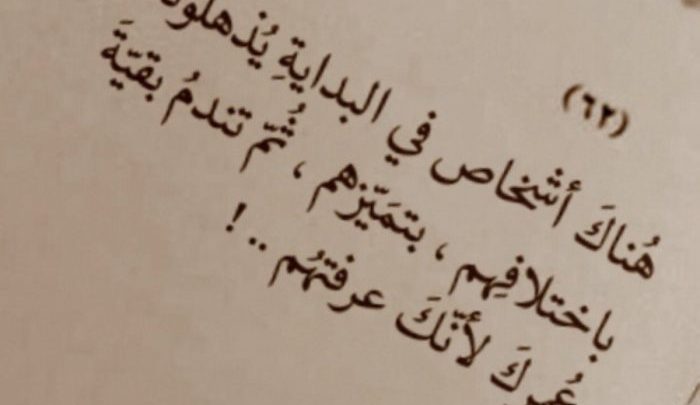 (٦٢)
هُناكَ أشخاص في البدايةِ يُذهلونك
باختلافِهم ، بتميّزهم ، ثُمّ تندمُ بقيّةَ
عُمركَ لأنّكَ عرفتَهُم ..!